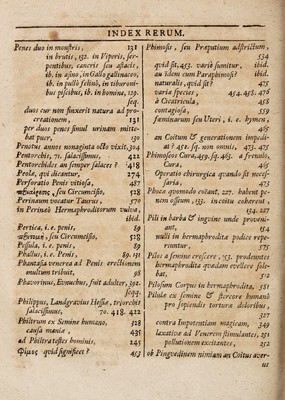 INDEX RERUM.
Penes duo in monstris, 131
in brutis, 132. in Viperis, ser-
pentibus, cancris seu astacis,
ib. in asino, in Gallo gallinaceo,
ib. in pullo felino, in tiburoni-
bus piscibus, ib. in homine, 129.
seqq.
duos cur non finxerit natura ad pro-
creationem, 131
per duos penes simul urinam mitte-
bat puer, 130
Penotus annos nonaginta octo vixit, 304
Pentorchis, 71. salacissimus, 422
Pentorchidas an semper salaces? 418
Peola, qui dicantur, 274
Perforatio Penis vitiosa, 487
seu Circumcisio, 528
Perinæum vocatur Taurus, 570
in Perinæo Hermaphroditorum vulva,
ibid.
Pertica, i. e. penis, 89
seu Circumcisio, 528
Pessula, i. e. penis, 89
Phallus, i. e. penis, 89. 131
Phantasia venerea ad Penis erectionem
multum tribuit, 98
Phavorinus, Eunuchus, fuit adulter, 392.
seqq.
Philippus, Landgravius Hessiæ, triorchis
salacissimus, 70. 418. 422
Philtrum ex Semine humano, 328
causa maniæ, 435
ad Philtratestes hominis, 245
Φίμος quid significet? 453
Phimosis, seu Præputium adstrictum,
534
quid sit, 453. variè sumitur, ibid.
an idem cum Paraphimosi? ibid.
naturalis, quid sit? 475
varia species, 454. 455. 476
à Cicatricula, 458
contagiosa, 559
fæminarum seu Uteri, i. e. hymen,
an Coitum & generationem impedi-
at? 459. sq. non omnis, 473. 475
Phimoseos Cura, 459. sq. 463. a frenulo,
Cura, 465
Operatio chirurgica quando sit neces-
saria, 473
Phoca quomodo coëant, 227. habent pe-
nem osseum, 133. in coitu cohærent,
134. 227
Pili in barba & inguine unde proveni-
ant, 154
nulli in hermaphrodita podice repe-
riuntur, 575
Pilos a semine crescere, 153. prodeuntes
hermaphrodita quædam evellere sole-
bat, 512
Pilosum Corpus in hermaphrodita, 581
Pilulæ ex semine & stercore humano
pro sopiendis tortura doloribus,
327
contra Impotentiam magicam, 349
laxativæ ad Venerem stimulantes, 251
pollutionem excitantes, 252
ob Pinguedinem nimiam an Coitus aver-